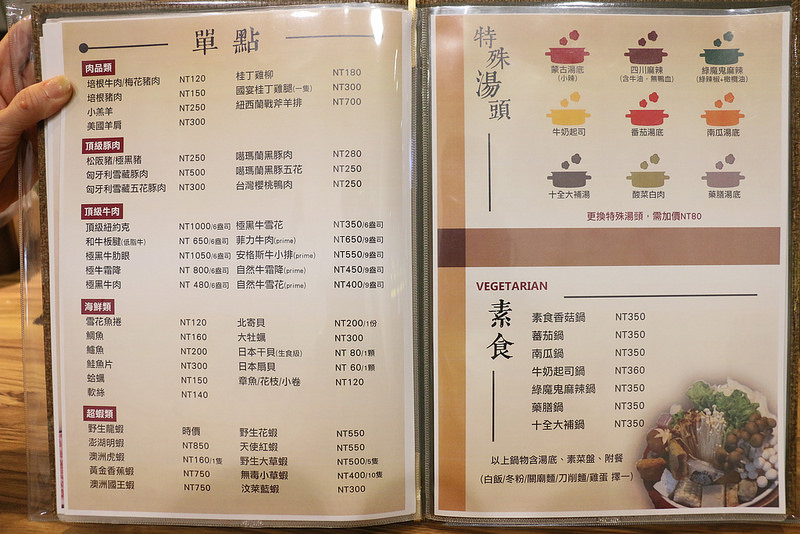 單點
肉品類
培根牛肉/梅花豬肉 NT120
培根豬肉 NT150
小羔羊 NT250
美國羊肩 NT300
桂丁雞柳 NT180
國宴桂丁雞腿(一隻) NT300
紐西蘭戰斧羊排 NT700
頂級豚肉
松阪豬/極黑豬 NT250
匈牙利雪藏豚肉 NT500
匈牙利雪藏五花豚肉 NT300
噶瑪蘭黑豚肉 NT280
噶瑪蘭黑豚五花 NT250
台灣櫻桃鴨肉 NT250
頂級牛肉
頂級紐約克 NT1000/6盎司
和牛板腱(低脂牛) NT 650/6盎司
極黑牛肋眼 NT1050/6盎司
極牛霜降 NT 800/6盎司
極黑牛肉 NT 480/6盎司
極黑牛雪花 NT350/6盎司
菲力牛肉(prime) NT650/9盎司
安格斯牛小排(prime) NT550/9盎司
自然牛霜降(prime) NT450/9盎司
自然牛雪花(prime) NT400/9盎司
海鮮類
雪花魚捲 NT120
鯛魚 NT160
鱸魚 NT200
鮭魚片 NT300
蛤蠣 NT150
軟絲 NT140
北寄貝 NT200/1份
大牡蠣 NT300
日本干貝(生食級) NT 80/1顆
日本扇貝 NT 60/1顆
章魚/花枝/小卷 NT120
超蝦類
野生龍蝦 時價
澎湖明蝦 NT850
澳洲虎蝦 NT160/1隻
黃金香蕉蝦 NT750
澳洲國王蝦 NT750
野生花蝦 NT550
天使紅蝦 NT550
野生大草蝦 NT500/5隻
無毒小草蝦 NT400/10隻
汶萊藍蝦 NT300
特殊湯頭
蒙古湯底 四川麻辣 綠魔鬼麻辣
(小辣) (含牛油，無鴨血) (綠辣椒+橄欖油)
牛奶起司 番茄湯底 南瓜湯底
十全大補湯 酸菜白肉 藥膳湯底
更換特殊湯頭，需加價NT80
VEGETARIAN
素食
素食香菇鍋 NT350
蕃茄鍋 NT350
南瓜鍋 NT350
牛奶起司鍋 NT360
綠魔鬼麻辣鍋 NT350
藥膳鍋 NT350
十全大補鍋 NT350
以上鍋物含湯底、素菜盤、附餐
(白飯/冬粉/關廟麵/刀削麵/雞蛋 擇一)